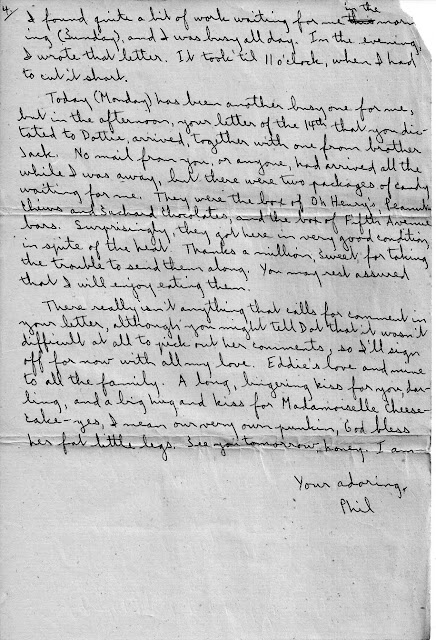 4/
in the
I found quite a bit of work waiting for me this morn-
ing (Sunday), and I was busy all day. In the evening,
I wrote that letter. It took 'til 11 o'clock, when I had
to cut it short.
Today (Monday) has been another busy one for me,
but in the afternoon, your letter of the 14th that you dic-
tated to Dottie, arrived, together with one from brother
Jack. No mail from you, or anyone, had arrived all the
while I was away, but there were two packages of candy
waiting for me. They were the box of Oh Henry's, Peanut
Chews and Suchard chocolates, and the box of Fifth Avenue
bars. Surprisingly, they got here in very good condition,
in spite of the heat. Thanks a million, Sweet for taking
the trouble to send them along. You may rest assured
that I will enjoy eating them.
There really isn't anything that calls for comment in
your letter, although you might tell Dot that it wasn't
difficult at all to pick out her comments, so I'll sign
off for now with all my love. Eddie's love and mine
to all the family. A long, lingering kiss for you, dar-
ling, and a big hug and kiss for Madamoiselle Cheese-
cake - yes, I mean our very own punkin, God bless
her fat little legs. See you tomorrow, honey. I am
Your adoring,
Phil